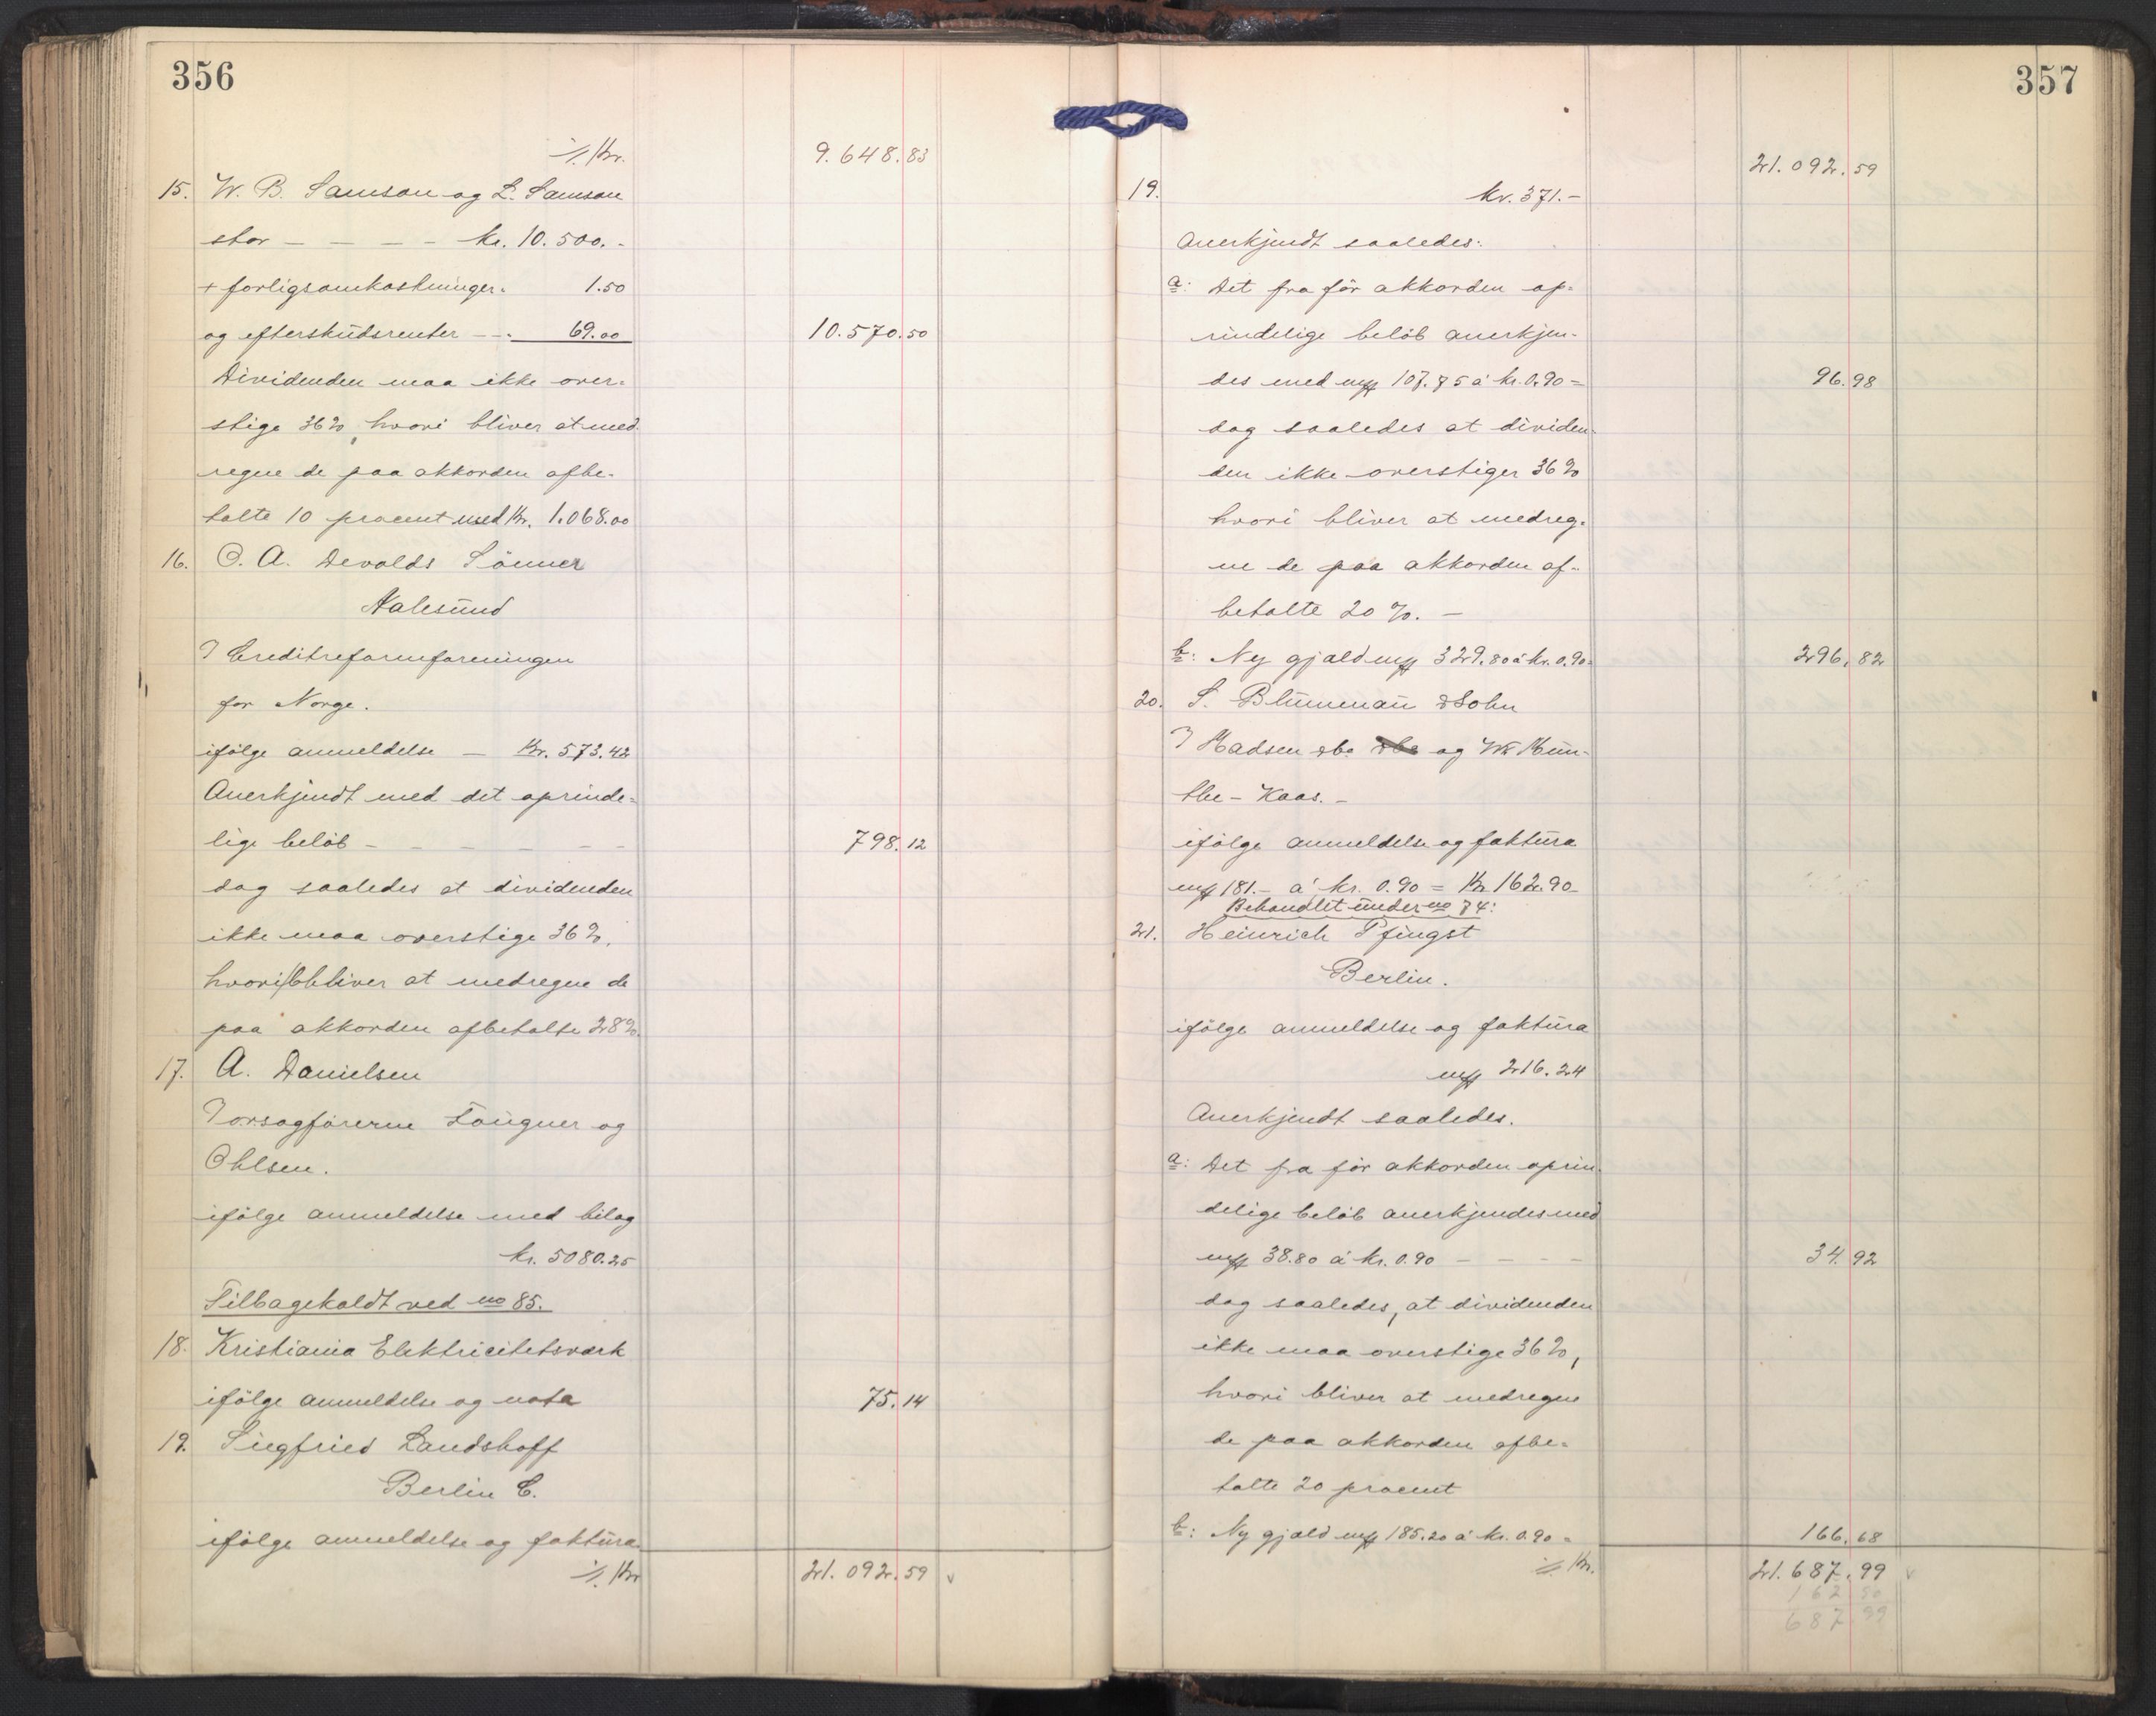 356
./. Kr. 9.648.83
15. W. B. Samson og L. Samson
stor - - - - kr. 10.500.-
+ forligsomkostninger. 1.50
og efterskudsrenter - . 69.00 10.570.50
Dividenden maa ikke over-
stige 36%, hvori bliver at med-
regne de paa akkorden afbe-
talte 10 procent med Kr. 1.068.00
16. O. A. Devolds Sönner
Aalesund
Creditreformforeningen
for Norge.
ifölge anmeldelse - Kr. 573.42
Anerkjendt med det oprinde-
lige belöb - - - - - - 798.12
dog saaledes at dividenden
ikke maa overstige 36%,
hvori bliver at medregne de
paa akkorden afbetalte 28%.
17. A. Danielsen
Overrsagförerne Lougner og
Ohlsen.
ifölge anmeldelse med bilag
kr. 5080.25
Tilbagekaldt ved no 85.
18. Kristiania Elektricitetsværk
ifölge anmeldelse og nota 75.14
19. Siegfried Landshoff
Berlin C.
ifölge anmeldelse og faktura.
./. Kr 21.092.59 v
357
21.092.59
19. kr. 371.-
Anerkjendt saaledes:
a: Det fra för akkorden op-
rindelige belöb anerkjen-
des med mk 107.75 à kr. 0.90 = 96.98
dog saaledes at dividen-
den ikke overstiger 36%
hvori bliver at medreg-
ne de paa akkorden af-
betalte 20%. -
b: Ny gjæld mk 329.80 à kr. 0.90 = 296.82
20. S. Blumenau & Sohn
Madsen og
- Kaas. -
ifölge anmeldelse og faktura
mk 181.- à kr. 0.90 = Kr 162.90
Behandlet under no 74:
21. Heinrich Pfingst
Berlin.
ifölge anmeldelse og faktura
mk 216.24
Anerkjendt saaledes.
a: Det fra för akkorden oprin-
delige belöb anerkjendes med
mk 38.80 à kr. 0.90 - - - - 34.92
dog saaledes, at dividenden
ikke maa overstige 36%,
hvori bliver at medregne
de paa akkorden afbe-
talte 20 procent
b: Ny gjæld mk 185.20 à kr. 0.90 = 166.68
./. Kr. 21.687.99 v
162 90
687 99